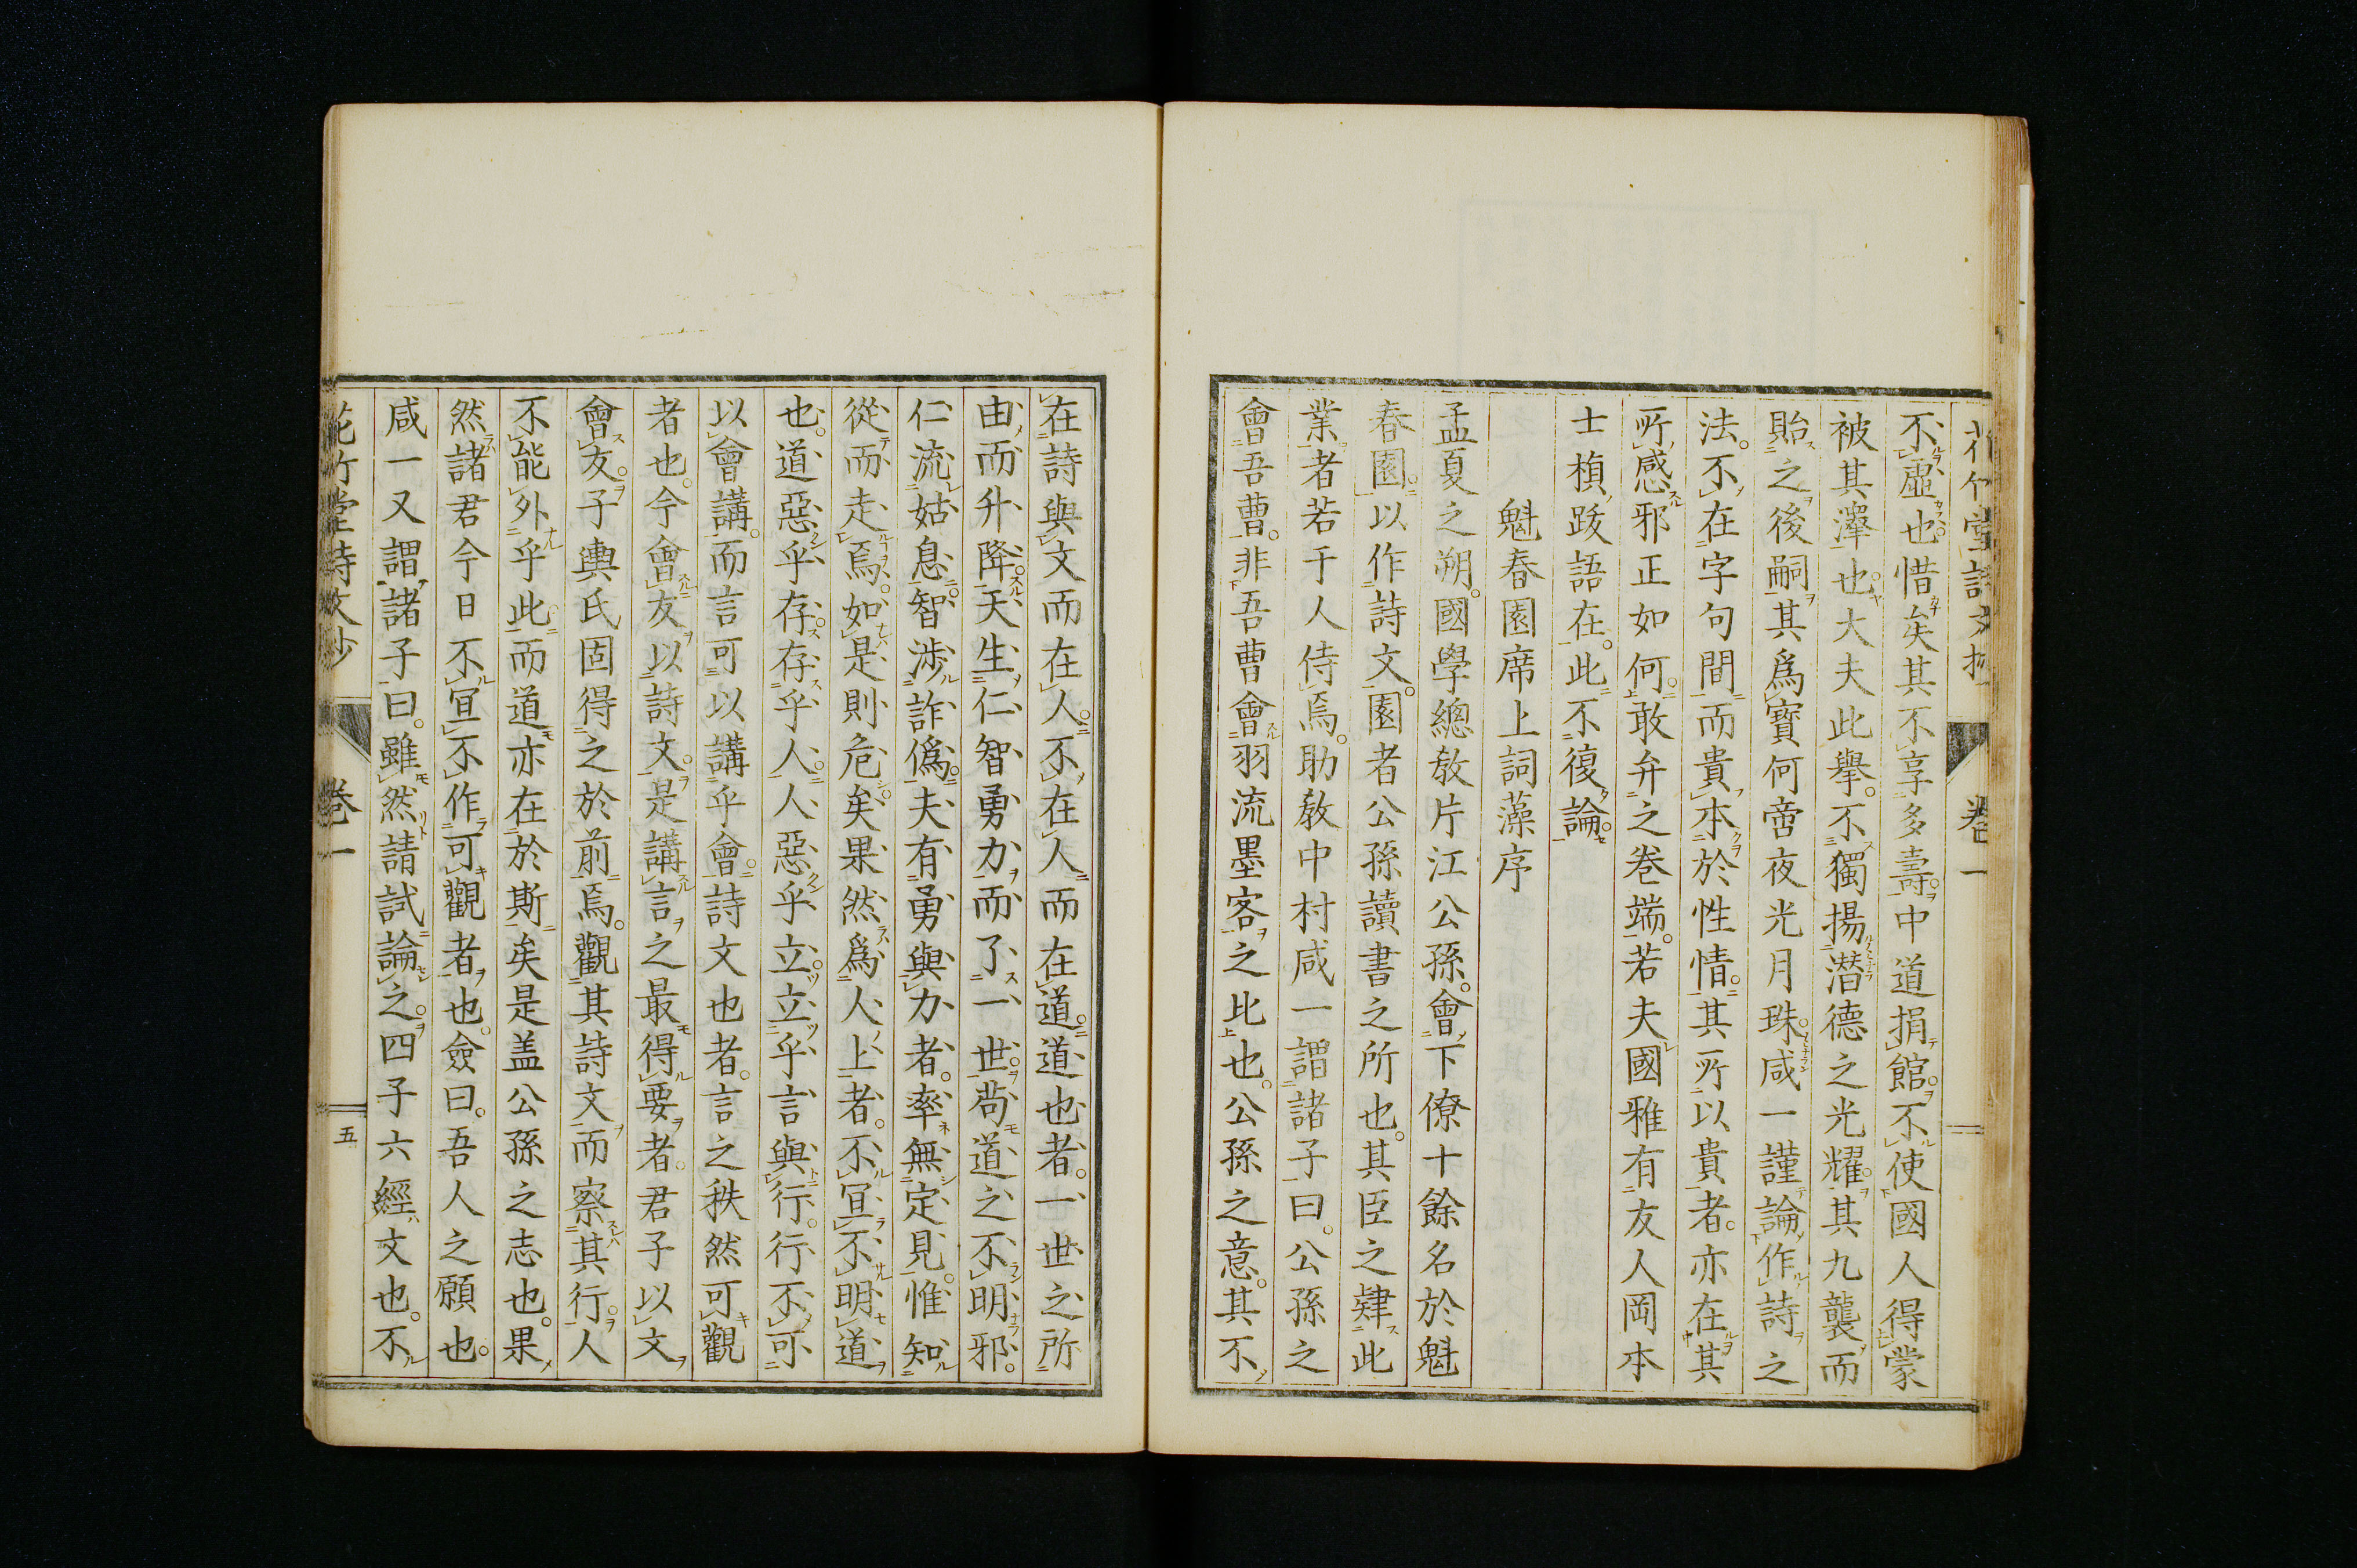 不虛也惜矣其不享多壽中道捐館不使國人得蒙
被其澤也大夫此擧不獨揚潜德之光耀其九襲而
貽之後嗣其爲寶何啻夜光月珠咸一謹論作詩之
法不在字句間而貴本於性情其所以貴者亦在其
所感邪正如何敢弁之巻端若夫國雅有友人岡本
士楨跋語在此不復論
魁春園席上詞藻序
孟夏之朔國學總敎片江公孫會下僚十餘名於魁
春園以作詩文園者公孫讀書之所也其臣之肄此
業者若干人侍焉助敎中村咸一謂諸子曰公孫之
會吾曹非吾曹會羽流墨客之比也公孫之意其不
在詩與文而在人不在人而在道道也者一世之所
由而升降天生仁智勇力而了一世苟道之不明邪
仁流姑息智渉詐僞夫有勇與力者率無定見惟知
從而走焉如是則危矣果然爲人上者不宜不明道
也道惡乎存存乎人人惡乎立立乎言與行行不可
以會講而言可以講乎會詩文也者言之秩然可觀
者也今會友以詩文是講言之最得要者君子以文
會友子輿氏固得之於前焉觀其詩文而察其行人
不能外乎此而道亦在於斯矣是盖公孫之志也果
然諸君今日不宜不作可觀者也僉曰吾人之願也
咸一又謂諸子曰雖然請試論之四子六經文也不
花竹堂詩文抄 卷一 五